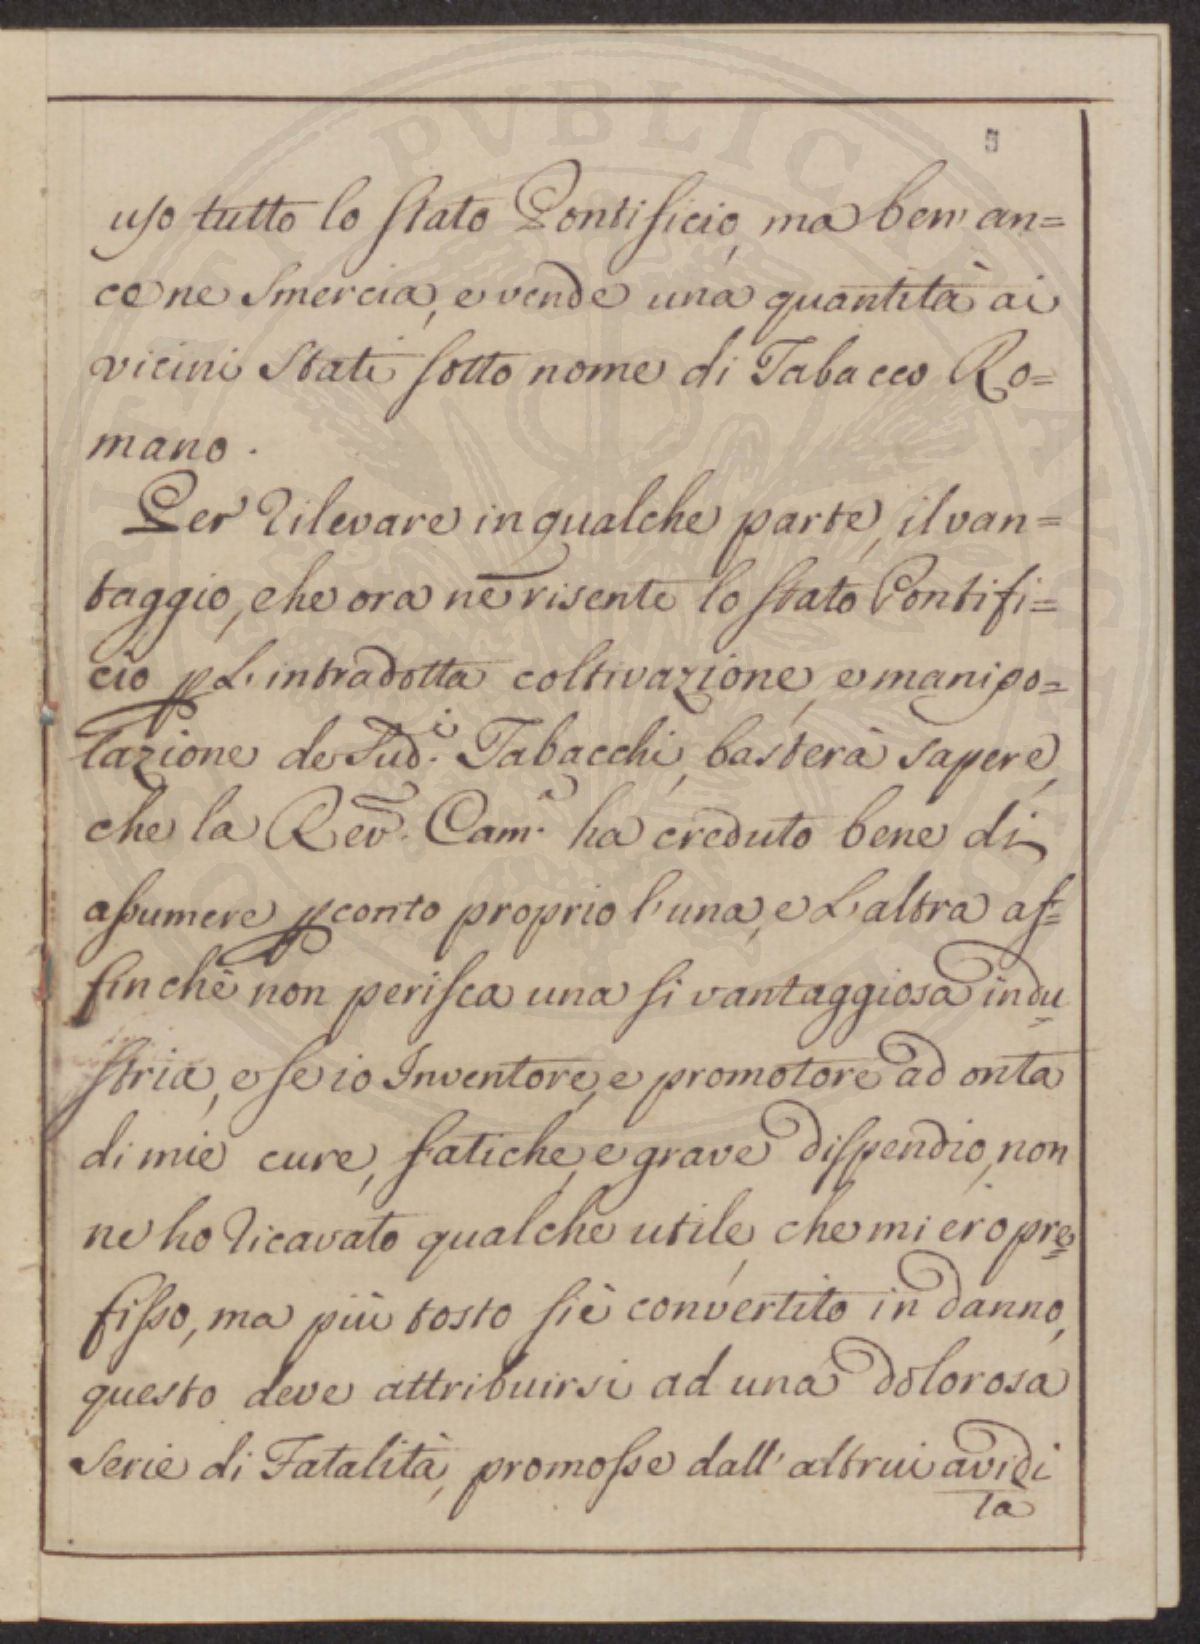 5
uso tutto lo Stato Pontificio, ma ben an=
co ne smercia, e vende una quantità ai
vicini Stati sotto nome di Tabacco Ro=
mano.
Per rilevare in qualche parte, il van=
taggio, che ora ne risente lo Stato Pontifi=
cio p L'intradotta coltivazione, e manipo=
lazione de Sud.i Tabacchi, basterà sapere,
che la Rev. Cam.a ha creduto bene di
assumere p conto proprio l'una, e L'altra af=
finchè non perisca una si vantaggiosa indu=
stria, e se io Inventore, e promotore ad onta
di mie cure, fatiche, e grave dispendio, non
ne ho ricavato qualche utile, che mi ero pre=
fisso, ma più tosto si è convertito in danno,
questo deve attribuirsi ad una dolorosa
serie di Fatalità, promosse dall'altrui avidi
tà